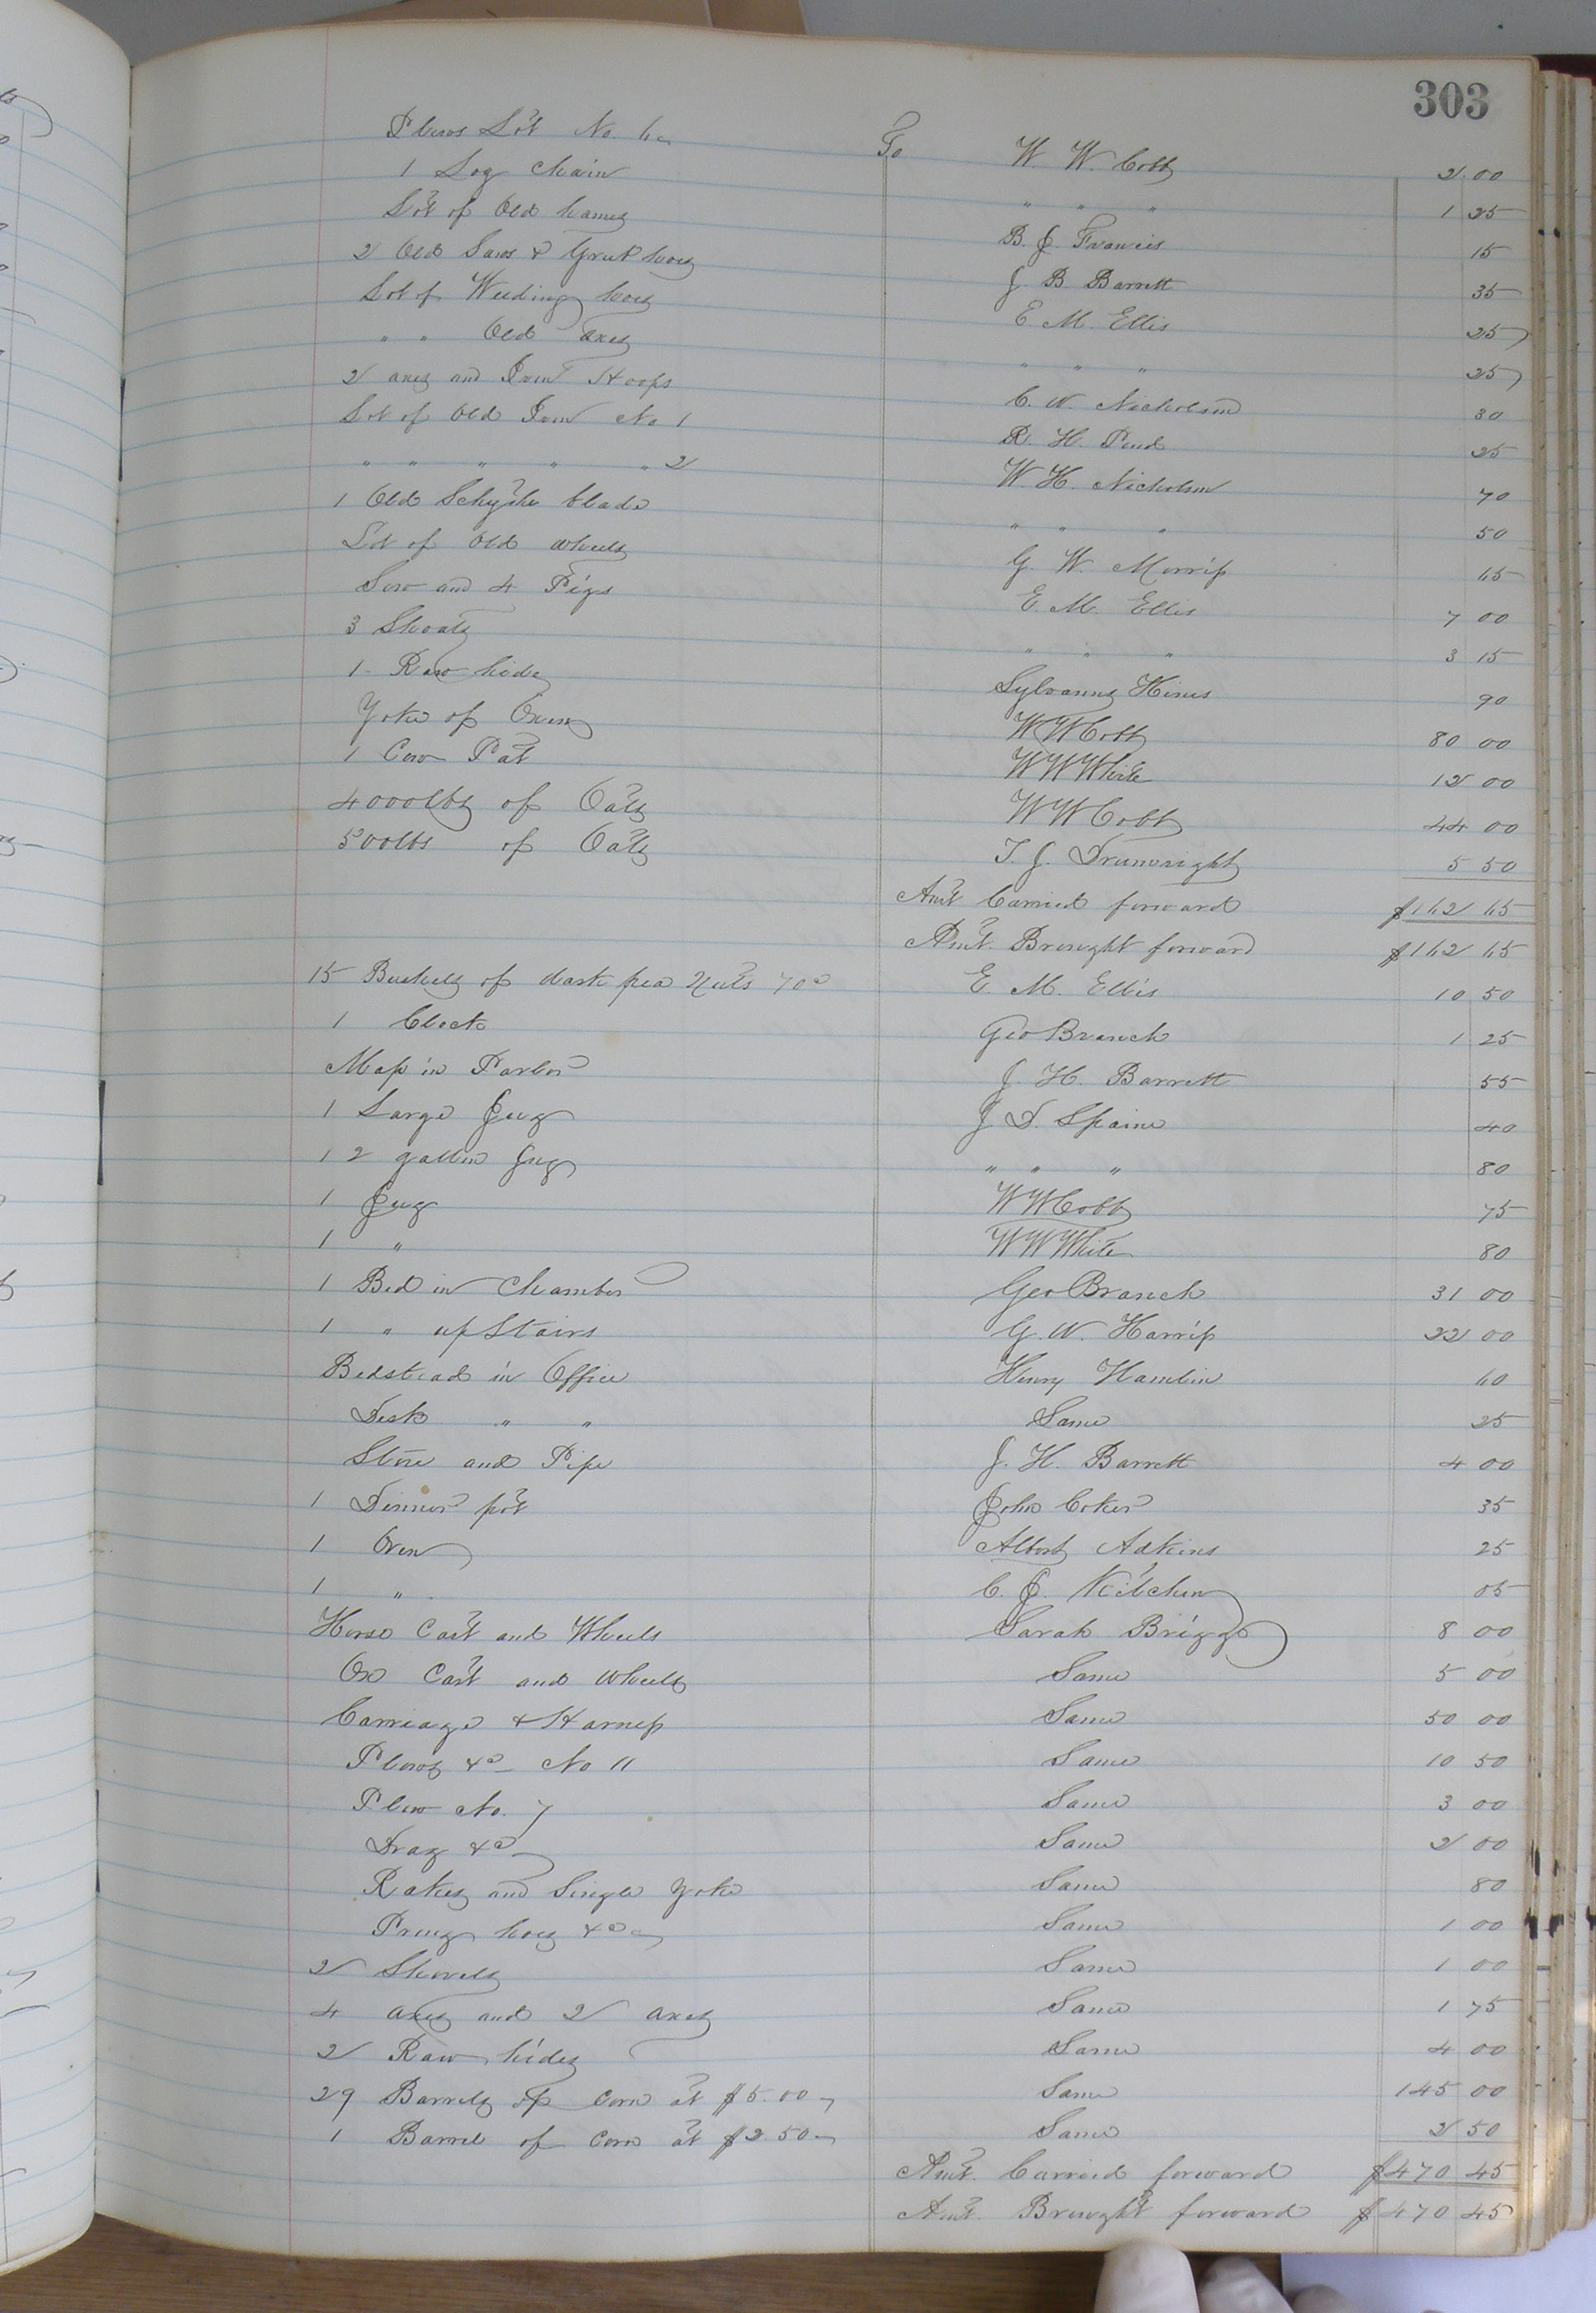 303
Plows Lot No. 6 To W. W. Cobb 2 00
1 Log Chain " " " 1 25
Lot of Old hames B. J. Francis 15
2 Old Saws & Grub hoes J. B. Barrett 35
Lot of Weeding hoes E. M. Ellis 25
" " Old axes " " " 25
2 axes and Iron Hoops C. W. Nicholson 30
Lot of Old Iron No 1 R. H. Pond 25
" " " " " 2 W. H. Nicholson 70
1 Old Schythe blade " " " 50
Lot of Old wheels G. W. Morriss 65
Sow and 4 Pigs E. M. Ellis 7 00
3 Shoats " " " 3 15
1 Raw hide Sylvanus Hines 90
Yoke of Oxen W W Cobb 80 00
1 Cow Pat W W White 12 00
4000lbs of Oats W W Cobb 44 00
500lbs of Oats T. J. Drumwright 5 50
Amt Carried forward $162 65
Amt. Brought forward $162 65
15 Bushels of dark pea Nuts 70c E. M. Ellis 10 50
1 Clock Geo Branch 1 25
Map in Parlor J. H. Barrett 55
1 Large Jug J D. Spain 40
1 2 gallon Jug " " " 80
1 Jug W W Cobb 75
1 " W W White 80
1 Bed in Chamber Geo Branch 31 00
1 " up Stairs G. W. Harriss 22 00
Bedstead in Office Henry Hamlin 60
Desk " " Same 25
Stove and Pipe J. H. Barrett 4 00
1 Dinner pot John Coker 35
1 Oven Albert Adkins 25
1 " C. J. Kitchen 05
Horse Cart and Wheels Sarah Briggs 8 00
Ox Cart and Wheels Same 5 00
Carriage & Harness Same 50 00
Plows &c No 11 Same 10 50
Plow No. 7 Same 3 00
Drag &c Same 2 00
Rakes and Single Yoke Same 80
Prong hoes &c Same 1 00
2 Shovels Same 1 00
4 axes and 2 axes Same 1 75
2 Raw hides Same 4 00
29 Barrels of Corn at $5.00 Same 145 00
1 Barrel of Corn at $2.50 Same 2 50
Amt. Carried forward $470 45
Amt. Brought forward $470 45